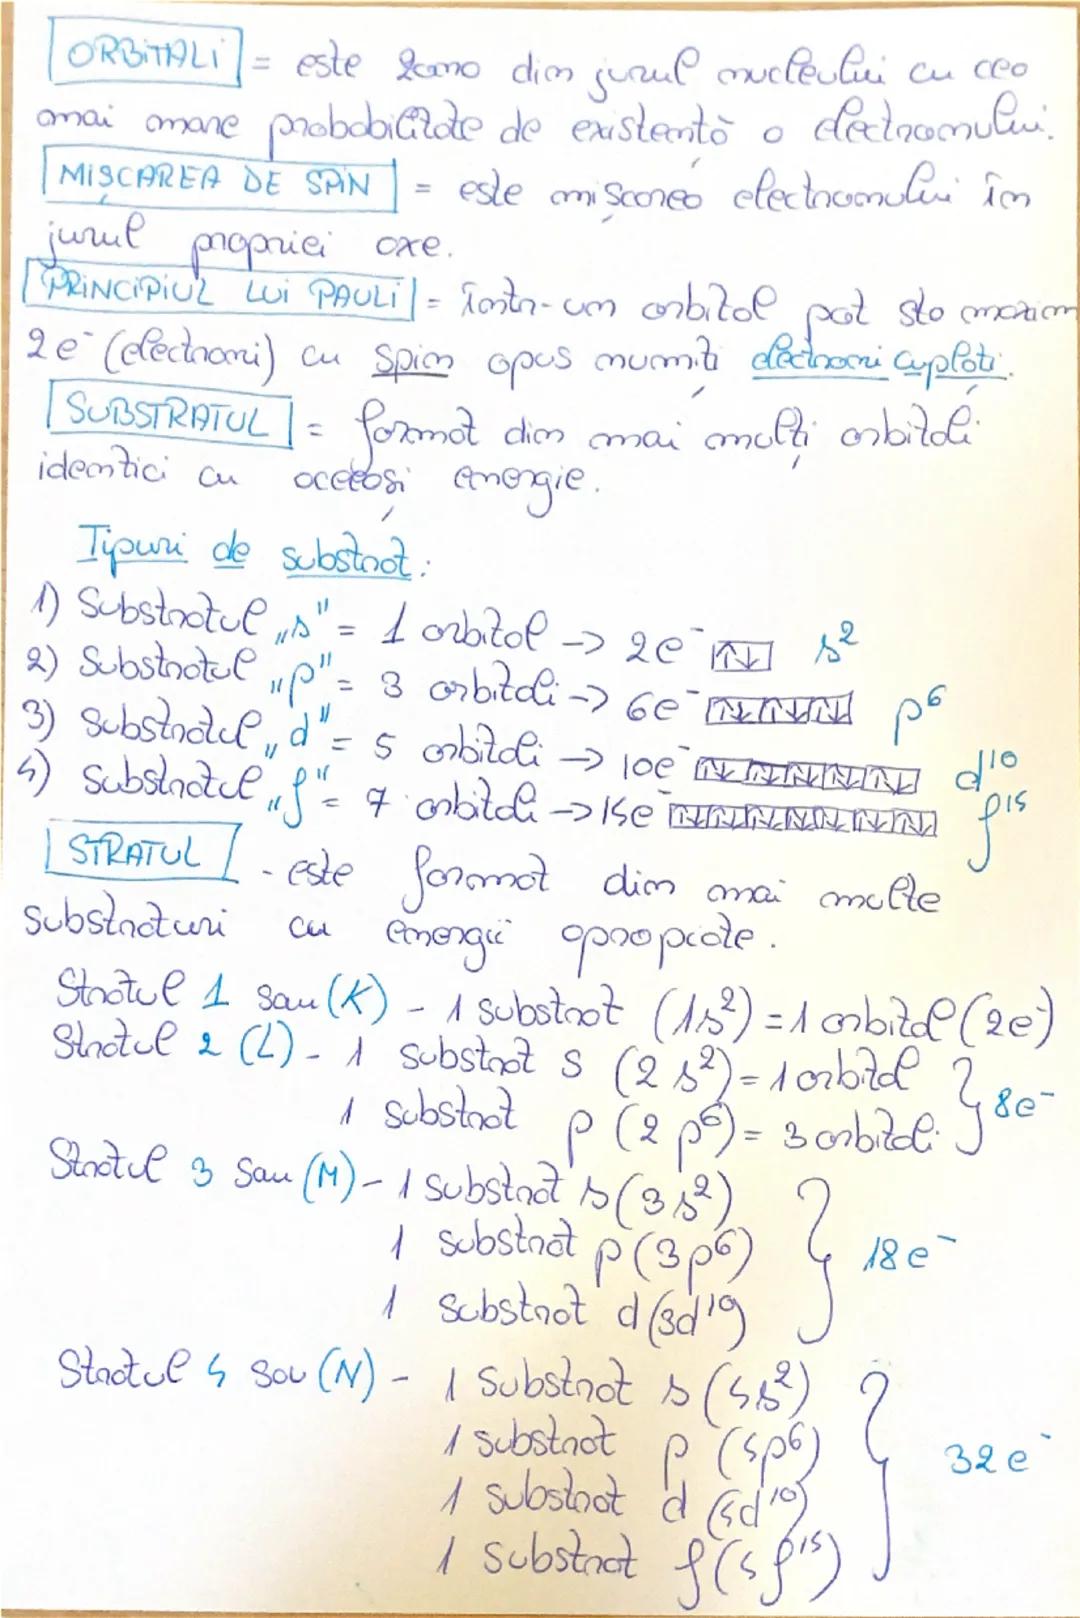 ORBITALI = este zona din jurul nucleului cu cea
mai mare probabilitate de existentă a electronului.
MIȘCAREA DE SPIN = este mișcarea electronului în
jurul propriei axe.
PRINCIPIUL LUI PAULI = într-un orbital pot sta maxim
2e⁻ (electroni) cu spin opus numiți electroni cuplați.
SUBSTRATUL = format din mai mulți orbitali
identici cu aceeași energie.
Tipuri de substrat:
1) Substratul „s" = 1 orbital -> 2e⁻ ↑↓ s²
2) Substratul „p" = 3 orbitali -> 6e⁻ ↑↓ ↑↓ ↑↓ p⁶
3) Substratul „d" = 5 orbitali -> 10e⁻ ↑↓ ↑↓ ↑↓ ↑↓ ↑↓ d¹⁰
4) Substratul „f" = 7 orbitali -> 14e⁻ ↑↓ ↑↓ ↑↓ ↑↓ ↑↓ ↑↓ ↑↓ f¹⁴
STRATUL - este format din mai multe
substraturi cu energii apropiate.
Stratul 1 sau (K) - 1 substrat (1s²) = 1 orbital (2e⁻)
Stratul 2 (L) - 1 substrat s (2s²) = 1 orbital
1 substrat p (2p⁶) = 3 orbitali } 8e⁻
Stratul 3 sau (M) - 1 substrat s (3s²)
1 substrat p (3p⁶) } 18e⁻
1 substrat d (3d¹⁰)
Stratul 4 sau (N) - 1 substrat s (4s²)
1 substrat p (4p⁶) } 32e⁻
1 substrat d (4d¹⁰)
1 substrat f (4f¹⁴)